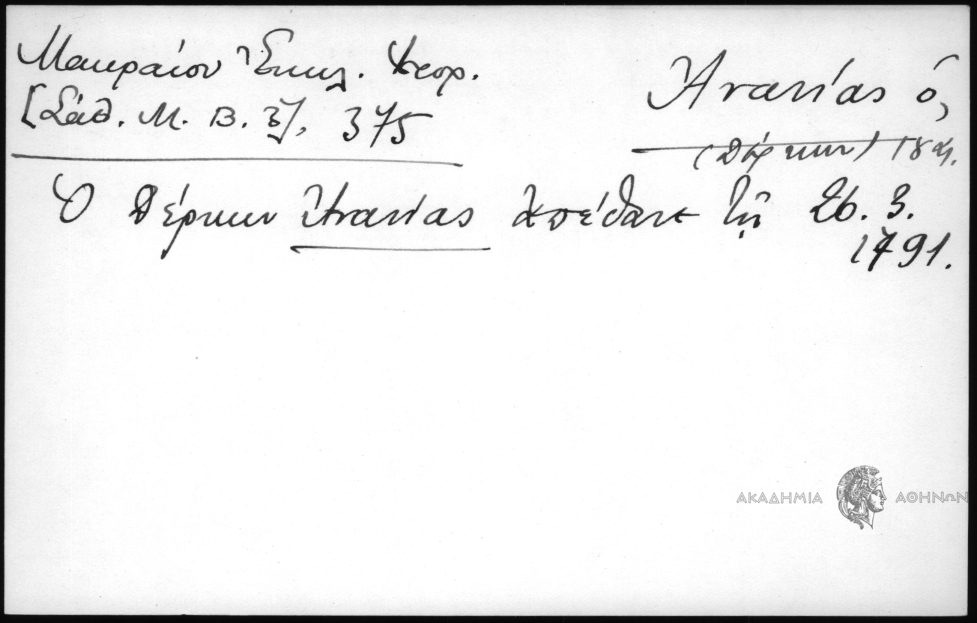 Μακραίου Ἐκκλ. Ἱστορ.
[Σάθ. Μ. Β. Γ], 375
Ἀνανίας ὁ,
(Δέρκων) 18 αἰ.
Ὁ Δέρκων Ἀνανίας ἀπέθανε τῇ 26. 3.
1791.
ΑΚΑΔΗΜΙΑ ΑΘΗΝΩΝ